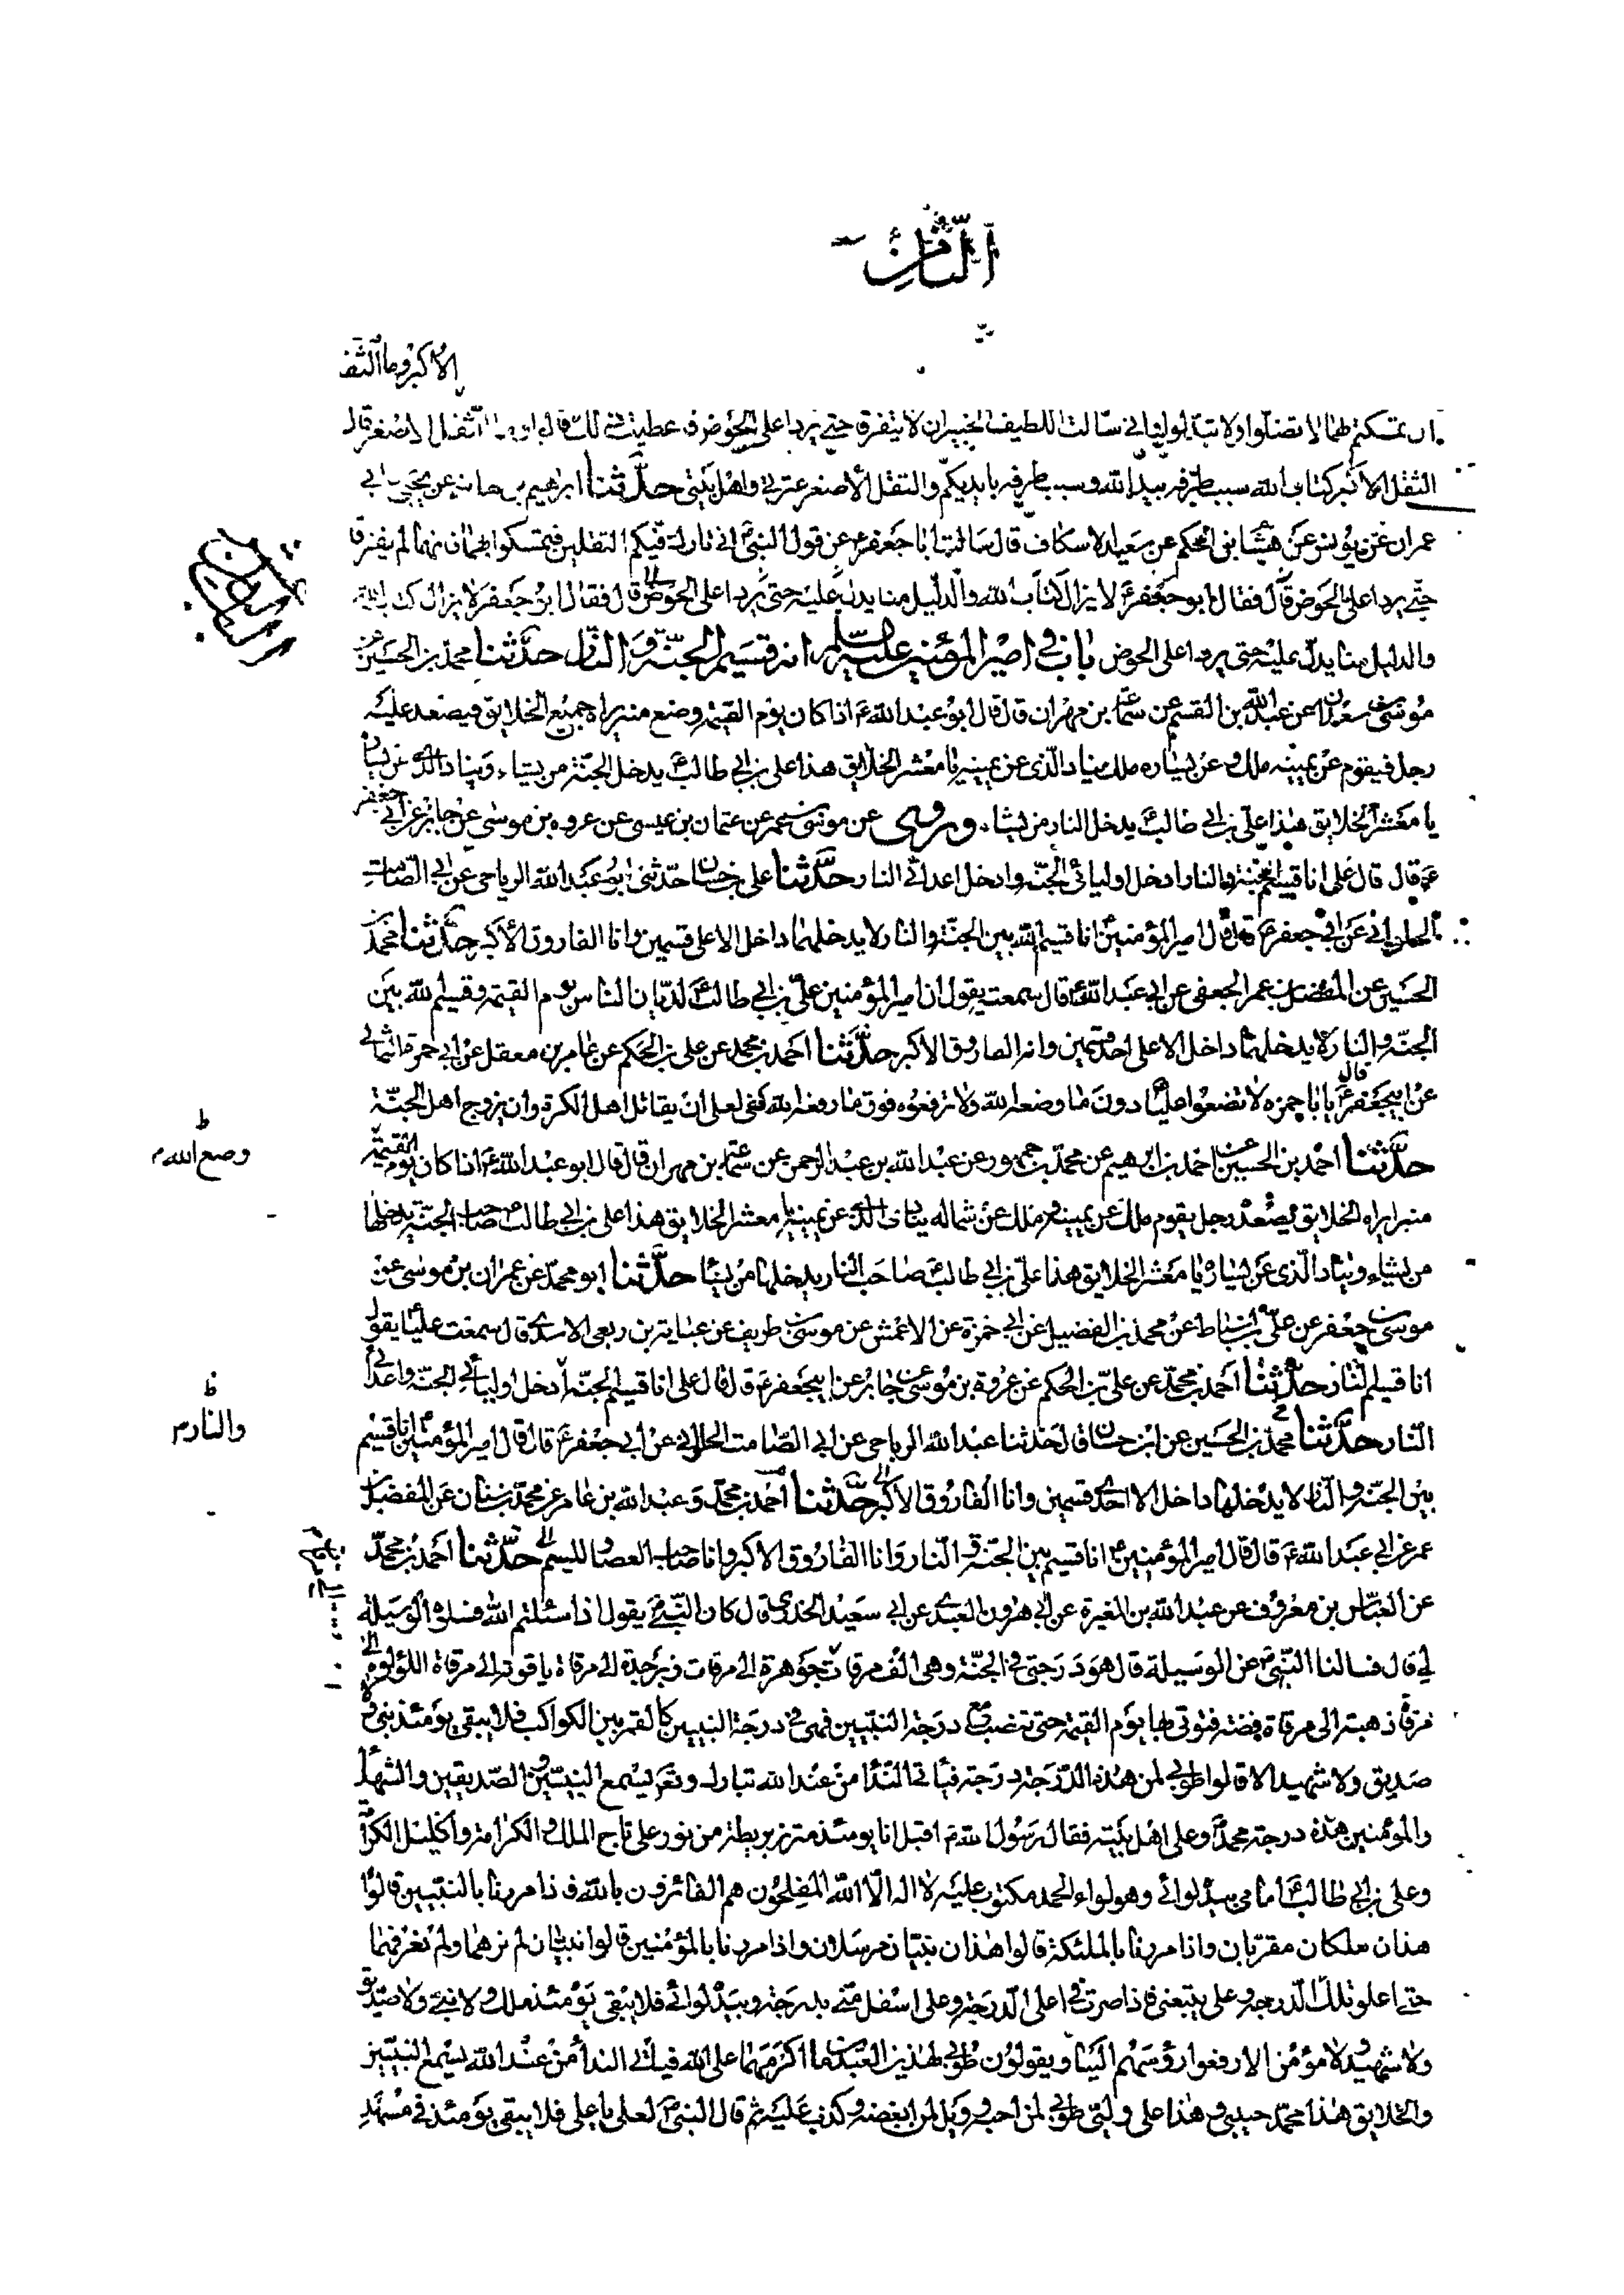 الثامن
الاكبر وما الثقل
ان تمسكتم بهما لا تضلوا ولا تبدلوا واني سالت اللطيف الخبير ان لا يتفرقا حتى يردا على الحوض فاعطيت ذلك قالوا وما الثقل الاصغر قال
الثقل الاكبر كتاب الله سبب طرفه بيد الله وسبب طرفه بايديكم والثقل الأصغر عترتي واهل بيتي حدّثنا ابرهيم بن هاشم عن يحيى بن ابي
عمران عن يونس عن هشام بن الحكم عن سعد الاسكاف قال سالت ابا جعفر ع عن قول النبي ص اني تارك فيكم الثقلين فتمسكوا بهما فانهما لم يفترقا
حتى يردا على الحوض قال فقال ابو جعفر ع لا يزال كتاب الله والدليل منا يدل عليه حتى يردا على الحوض قال فقال ابو جعفر لا يزال كتاب الله
والدليل منا يدلّ عليه حتى يردا على الحوض باب في امير المؤمنين عليه السلم انه قسيم الجنّة والنار حدّثنا محمد بن الحسين عن
موسى بن سعدان عن عبد الله بن القسم عن سماعة بن مهران قال قال ابو عبد الله ع اذا كان يوم القيمة وضع منبر يراه جميع الخلايق فيصعد عليه
رجل فيقوم عن يمينه ملك وعن يساره ملك يناد الّذى عن يمينه يا معشر الخلايق هذا على بن ابي طالب ع يدخل الجنّة من يشاء وينادى الذى عن يساره
يا معشر الخلايق هذا على بن ابي طالب ع يدخل النار من يشاء وروى عن موسى بن عمر عن عثمان بن عيسى عن عروه بن موسى عن جابر عن ابي جعفر
ع قال قال على انا قسيم الجنة والنار ادخل اوليائى الجنّة وادخل اعدائى النار حدّثنا على بن حسان حدّثنى ابو عبد الله الرياحى عن ابي الصّامت
الحلوانى عن ابى جعفر ع قال قال امير المؤمنين ع انا قسيم الله بين الجنّة والنار لا يدخلهما داخل الا على قسمين وانا الفاروق الأكبر حدّثنا محمد بن
الحسين عن المفضل بن عمر الجعفى عن ابي عبد الله ع قال سمعته يقول ان امير المؤمنين علىّ بن ابي طالب ع لديّان الناس يوم القيمة وقسيم الله بين
الجنّة والنار لا يدخلهما داخل الا على احد قسمين وانه الفاروق الاكبر حدّثنا احمد بن محمد عن على بن الحكم عن عامر بن معقل عن ابي حمزة الثمالي
عن ابيجعفر ع قال يا ابا حمزه لا تضعوا عليا دون ما وضعه الله ولا ترفعوه فوق ما رفعه الله كفى لعلى ان يقاتل اهل الكرة وان يزوج اهل الجنّة
حدّثنا احمد بن الحسين عن احمد بن ابرهيم عن محمد بن جمهور عن عبد الله بن عبد الرحمن عن سماعة بن مهران قال قال ابو عبد الله ع اذا كان يوم القيمة
وضع الله م
منبر ايراه الخلايق يصعد رجل يقوم ملك عن يمينه وملك عن شماله ينادى الذى عن يمينه يا معشر الخلايق هذا على بن ابي طالب صاحب الجنّة يدخلها
من يشاء ويناد الّذى عن يساره يا معشر الخلايق هذا علىّ بن ابي طالب ع صاحب النار يدخلها من يشا حدّثنا ابو محمد عن عمران بن موسى عن
موسى بن جعفر عن علىّ بن اسباط عن محمد بن الفضيل عن ابي حمزة عن الاعمش عن موسى بن طريف عن عباية بن ربعى الاسدى قال سمعت عليا يقول
انا قسيم النار حدّثنا احمد بن محمد عن علىّ بن الحكم عن عروة بن موسى عن جابر عن ابيجعفر ع قال قال على انا قسيم الجنّة أدخل اوليائى الجنّة واعدائى
والنار م
النّار حدّثنا محمد بن الحسين عن ابن حسان قال حدثنا عبد الله الرياحى عن ابى الصّامت الحلواني عن ابي جعفر ع قال قال امير المؤمنين ع انا قسيم
بين الجنّة والنّار لا يدخلها داخل الا احد قسمين وانا الفاروق الاكبر حدّثنا احمد بن محمد وعبد الله بن عامر عن محمد بن سنان عن المفضل بن
عمر عن ابي عبد الله ع قال قال امير المؤمنين ع انا قسيم بين الجنّة والنّار وانا الفاروق الاكبر وانا صاحب العصا والميسم حدّثنا احمد بن محمد
عن العبّاس بن معروف عن عبد الله بن المغيرة عن ابي هرون العبدى عن ابي سعيد الخدرى قال كان النّبى ص يقول اذا سئلتم الله فسلوه الوسيلة
لى قال فسالنا النّبى ص عن الوسيلة قال هو درجتى في الجنّة وهى الف مرقات جوهرة الى مرقات زبرجدة الى مرقاة ياقوتة الى مرقاة اللؤلؤة الى
مرقاة ذهبة الى مرقاة فضة فتوتى بها يوم القيمة حتى تنصب مع درجة النبيّين فهى فى درجة النبيين كالقمر بين الكواكب فلا يبقى يومئذ نبى ولا
صديق ولا شهيد الا قالوا طوبى لمن هذه الدّرجة درجته فيأتى النّدا من عند الله تبارك وتع يسمع النبيّين والصّديقين والشهداء
والمؤمنين هذه درجة محمد وعلى اهل بيته فقال رسول الله ص اقبل انا يومئذ متزر بريطة من نور على تاج الملك والكرامة واكليل الكرامة
وعلى بن ابي طالب ع امامى بيده لوائى وهو لواء الحمد مكتوب عليه لا اله الّا الله المفلحون هم الفائزون بالله فاذا مررنا بالنبيّين قالوا
هذان ملكان مقربان واذا مررنا بالملئكة قالوا هذان نبيّان مرسلان واذا مررنا بالمؤمنين قالوا نبيّان لم نرهما ولم نعرفهما
حتى اعلو تلك الدّرجة وعلى يتبعنى فاذا صرت فى اعلى الدّرجة وعلى اسفل منّى بدرجة وبيده لوائى فلا يبقى يومئذ ملك ولا نبى ولا صدّيق
ولا شهيد ولا مؤمن الا رفعوا رؤسهم الينا ويقولون طوبى لهذين العبدين ما اكرمهما على الله فيأتى الندأ من عند الله يسمع النبيين
والخلايق هذا محمّد حبيبى وهذا على وليّى طوبى لمن احبه وويل لمن ابغضه وكذب عليه ثم قال النبى ص لعلى يا على فلا يبقى يومئذ فى مشهد